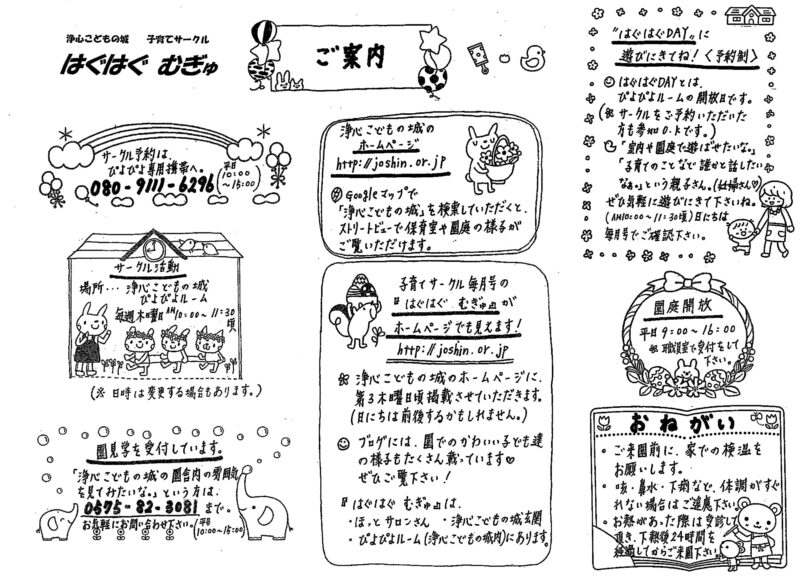 浄心こどもの城　子育てサークル
はぐはぐ むぎゅ
ご案内
サークル予約は、
ぴよぴよ専用携帯へ。
080-9111-6296
(平日
10:00
～15:00)
サークル活動
場所… 浄心こどもの城
ぴよぴよルーム
毎週木曜日AM10:00～11:30
頃
(※日時は変更する場合もあります。)
園見学を受付しています。
「浄心こどもの城の園舎内の雰囲気
を見てみたいな。」という方は、
0575-82-3081 まで。
お気軽にお問い合わせ下さい。(平日
10:00～15:00)
浄心こどもの城の
ホームページ
http://joshin.or.jp
Googleマップで
「浄心こどもの城」を検索していただくと、
ストリートビューで保育室や園庭の様子が
ご覧いただけます。
子育てサークル毎月号の
『はぐはぐ むぎゅ』が
ホームページでも見えます!
http://joshin.or.jp
浄心こどもの城のホームページに、
第3木曜日頃掲載させていただきます。
(日にちは前後するかもしれません。)
ブログには、園でのかわいい子ども達
の様子もたくさん載っています♡
ぜひご覧下さい!
『はぐはぐ むぎゅ』は、
・ほっとサロンさん ・浄心こどもの城玄関
・ぴよぴよルーム(浄心こどもの城内)にあります。
"はぐはぐDAY"に
遊びにきてね!〈予約制〉
はぐはぐDAYとは、
ぴよぴよルームの開放日です。
(※サークルをご予約いただいた
方も参加O.Kです。)
「室内や園庭で遊ばせたいな。」
「子育てのことなど誰かと話したい
なぁ。」という親子さん。(妊婦さん♡)
ぜひ気軽に遊びにきて下さいね。
(AM10:00～11:30頃)日にちは
毎月号でご確認下さい。
園庭開放
平日9:00～16:00
※職員室で受付をして
下さい。
おねがい
・ご来園前に、家での検温を
お願いします。
・咳・鼻水・下痢など、体調がすぐ
れない場合はご遠慮下さい。
・お熱があった際は受診して
頂き、下熱後24時間を
経過してからご来園下さい。